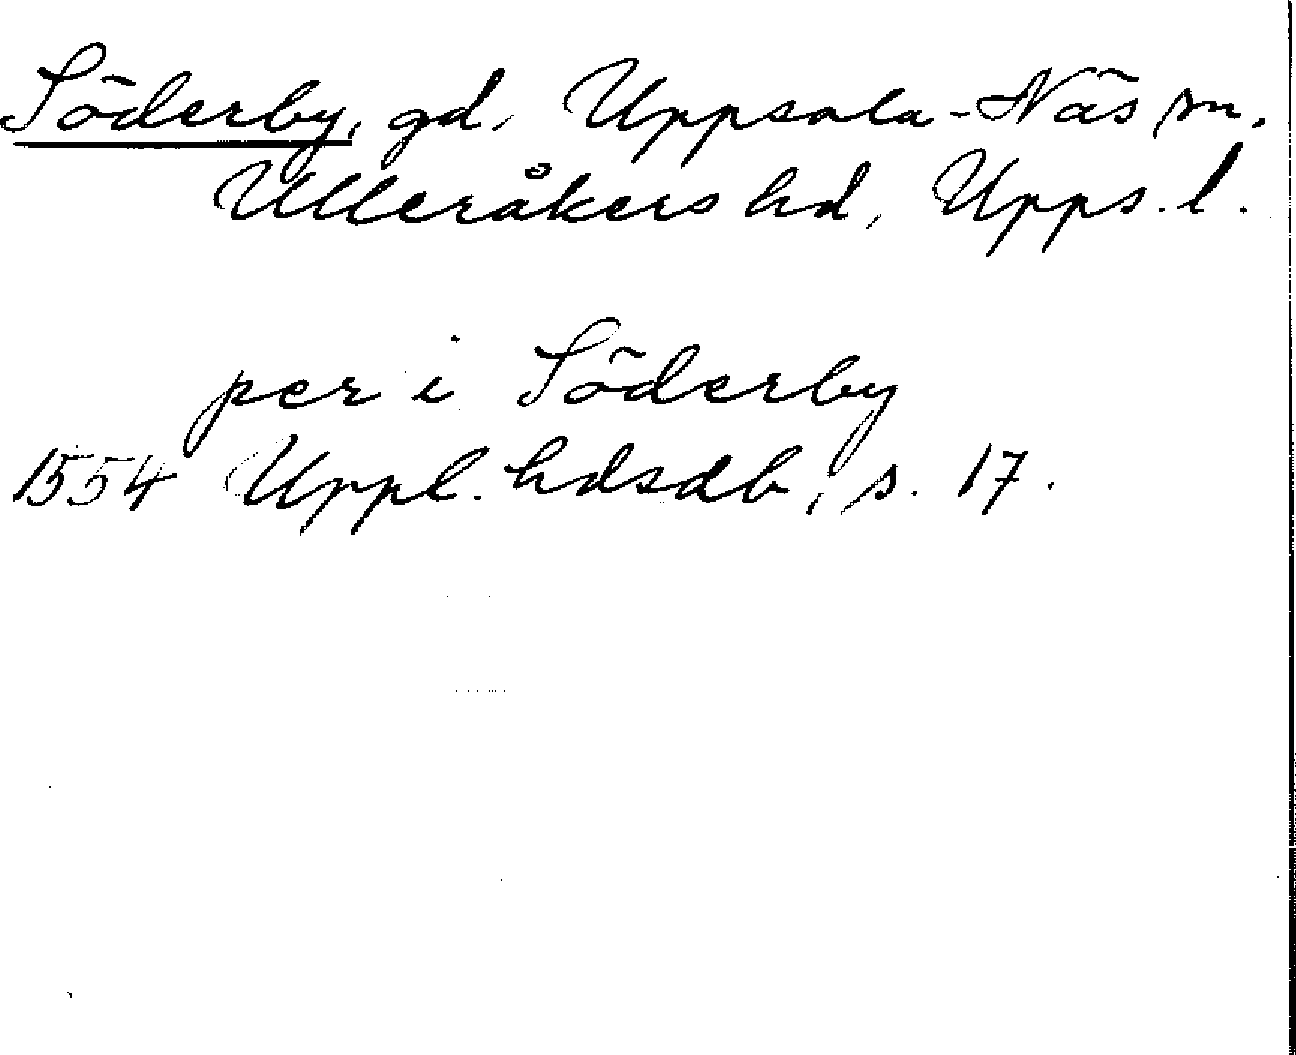 Söderby, gd, Uppsala-Näs sn,
Ulleråkers hd, Upps. l.
per i Söderby
1554 Uppl. hdsdb, s. 17.